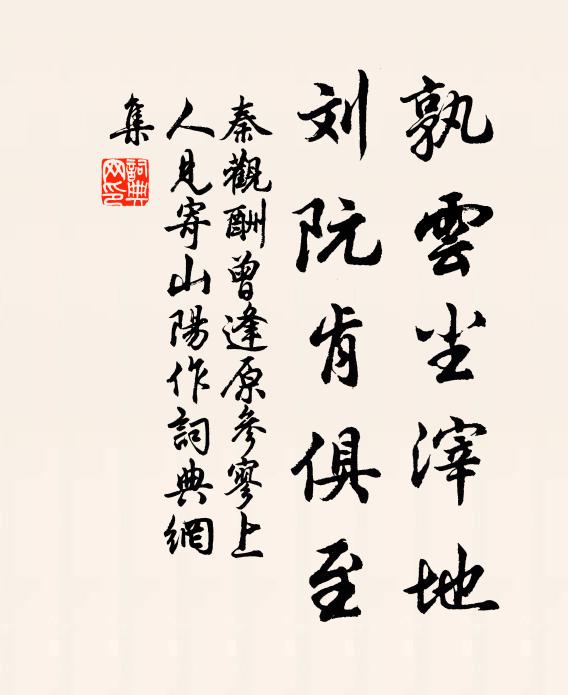 孰雲尘滓地
刘阮肯俱至
秦觀酬曾逢原參寥上
人見寄山陽作詞典網
集
詞典網印